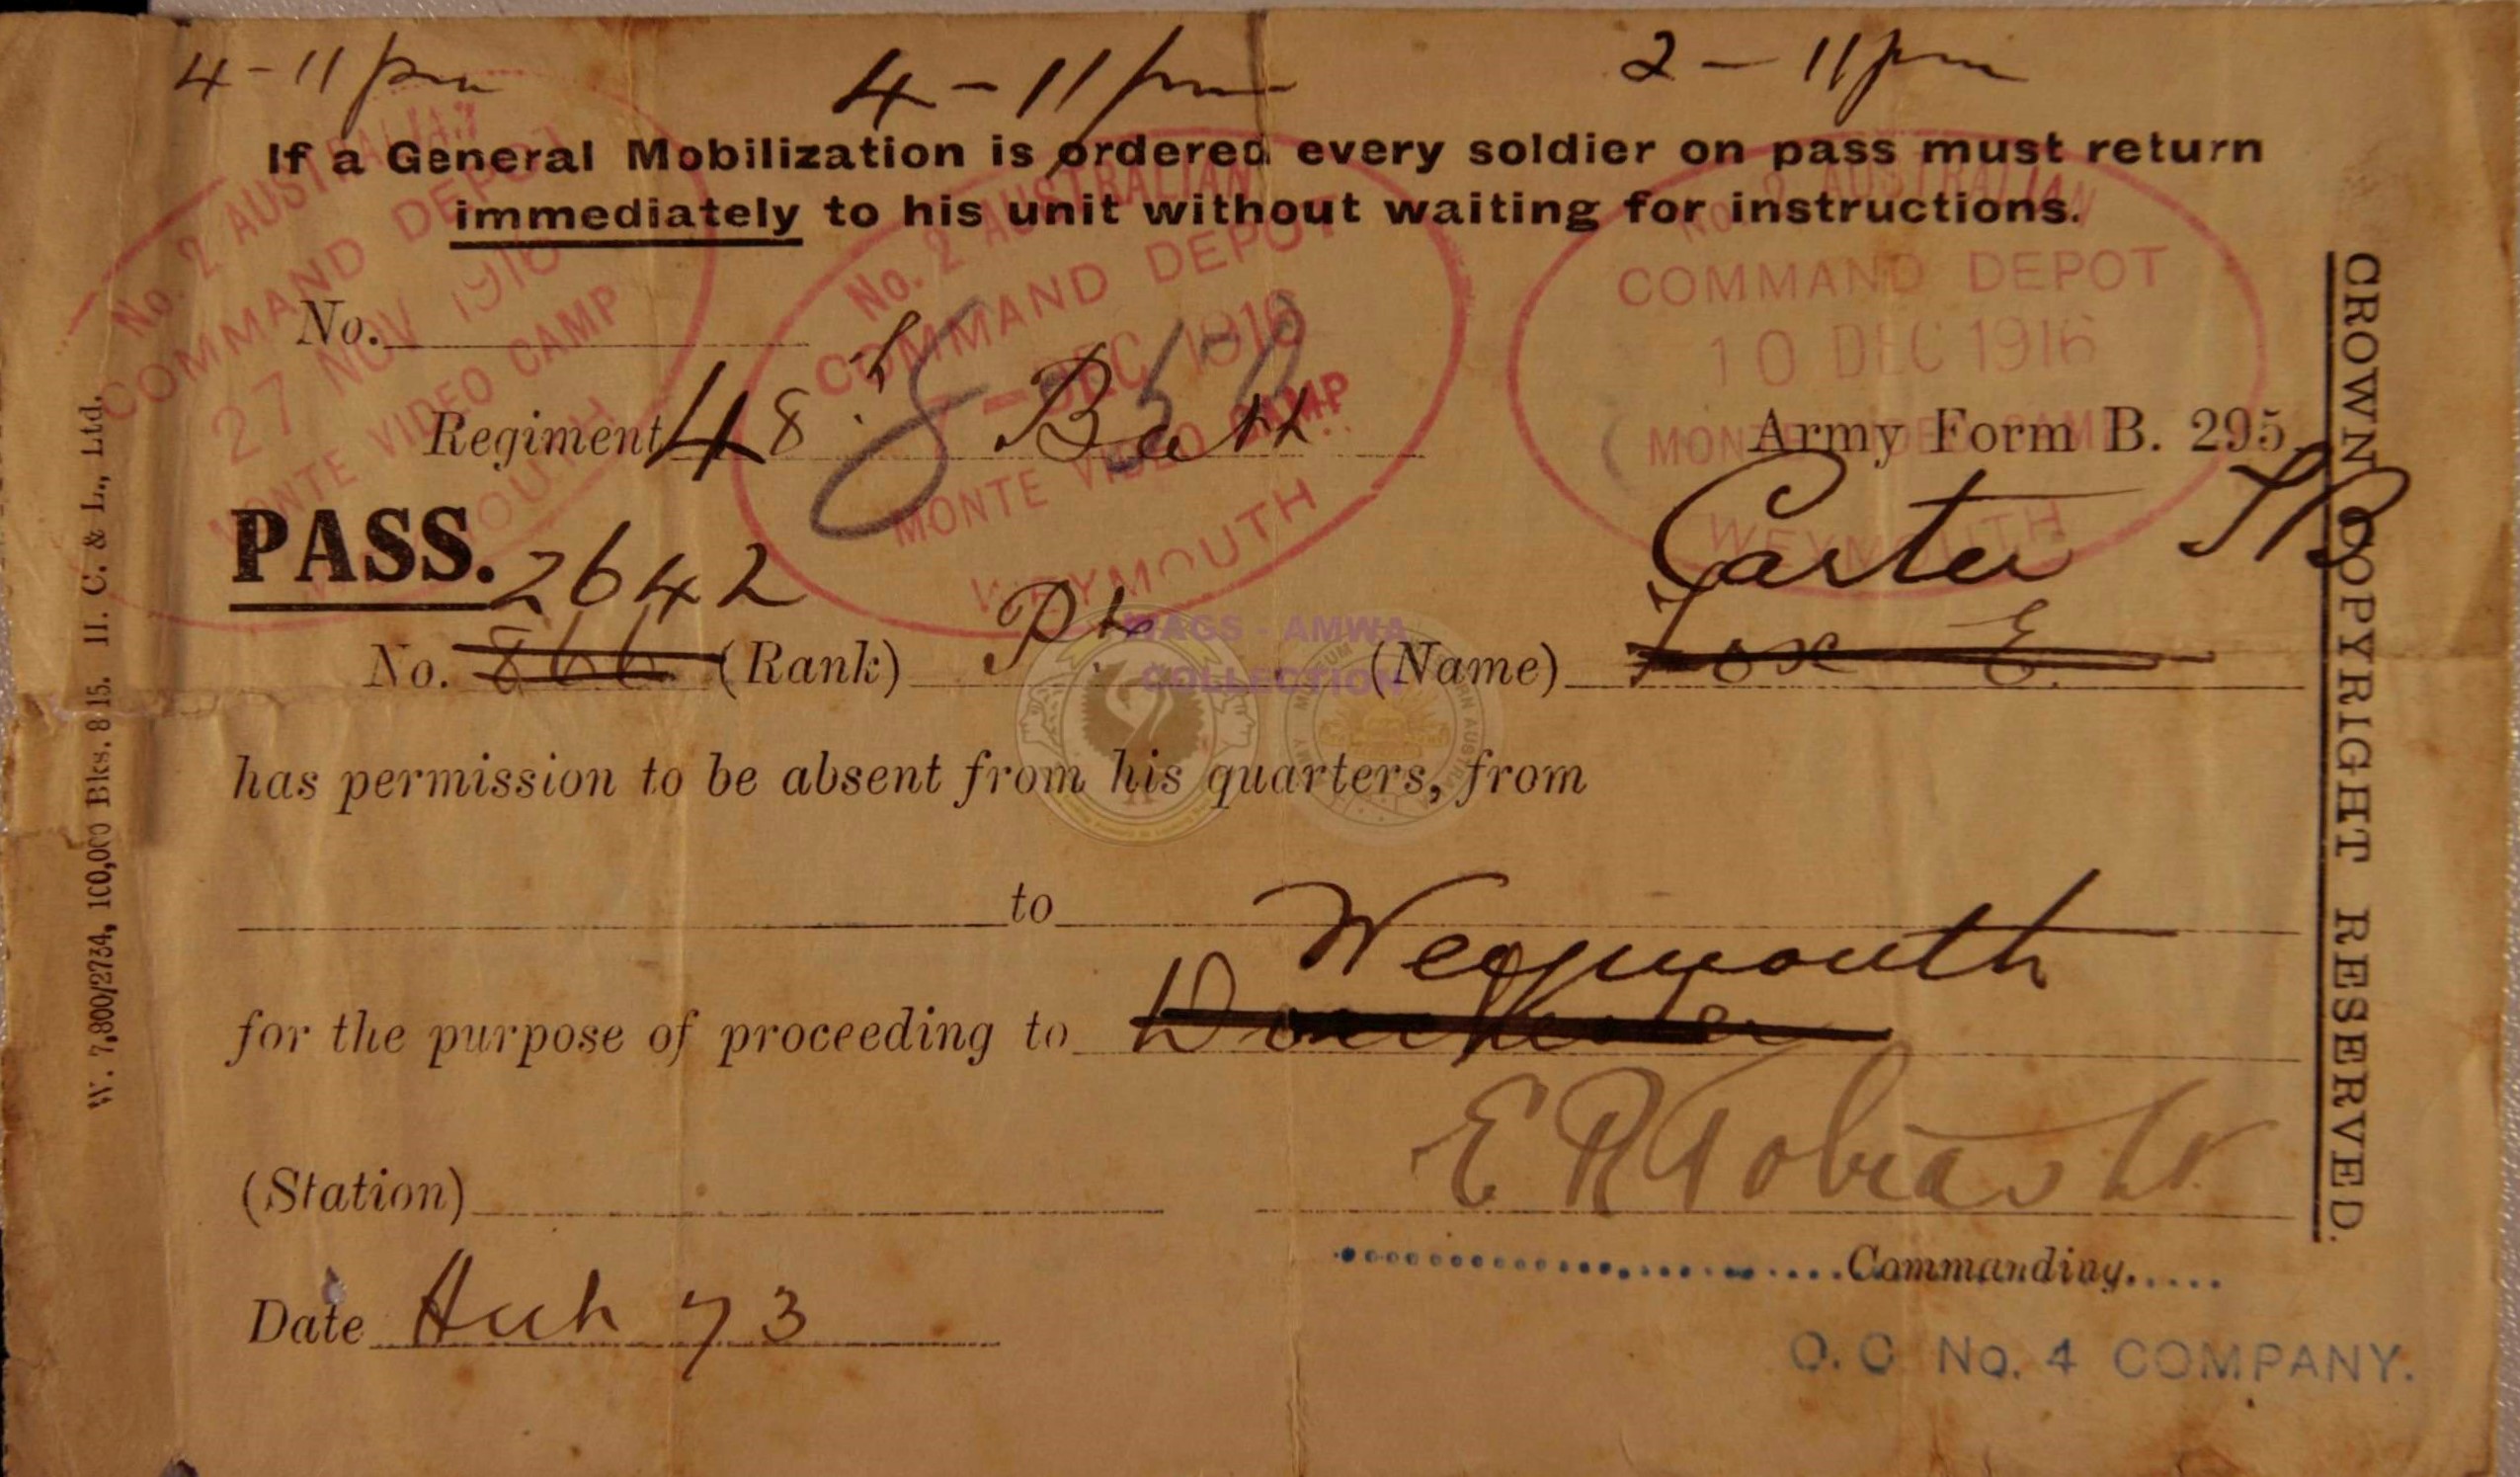 4-11 pm 4-11 pm 2-11 pm
If a General Mobilization is ordered every soldier on pass must return
immediately to his unit without waiting for instructions.
No. 2 AUSTRALIAN
COMMAND DEPOT
27 NOV 1916
MONTE VIDEO CAMP
WEYMOUTH
No. 2 AUSTRALIAN
COMMAND DEPOT
- DEC 1916
MONTE VIDEO CAMP
WEYMOUTH
No. 2 AUSTRALIAN
COMMAND DEPOT
10 DEC 1916
MONTE VIDEO CAMP
WEYMOUTH
No.
Regiment 48th Batt
Army Form B. 295.
PASS. 2642 Carter
No. 866 (Rank) Pte (Name) Fox E.
has permission to be absent from his quarters, from
to
Weymouth
for the purpose of proceeding to Dorchester
E R Tobias Lt
(Station)
Commanding
Date Hut 73
O. C No. 4 COMPANY.
CROWN COPYRIGHT RESERVED.
W. 7,800/2734, 100,000 Bks. 8 15. H. C. & L., Ltd.
WAGS - AMWA
COLLECTION